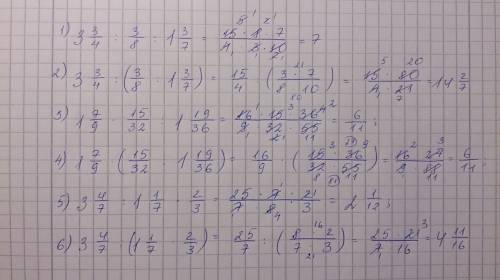 1) 3 3/4 : 3/8 : 1 3/7 = (15 · 8 · 7)/(4 · 3 · 10) = 7
2) 3 3/4 : (3/8 : 1 3/7) = 15/4 (3 · 7)/(8 · 10) = (15 · 80)/(4 · 21) = 14 2/7
3) 1 7/9 · 15/32 : 1 19/36 = (16 · 15 · 36)/(9 · 32 · 55) = 6/11 ;
4) 1 7/9 · (15/32 : 1 19/36) = 16/9 · (15 · 36)/(32 · 55) = (16 · 27)/(9 · 88) = 6/11 .
5) 3 4/7 : 1 1/7 · 2/3 = (25 · 7 · 2)/(7 · 8 · 3) = 2 1/12 ;
6) 3 4/7 : (1 1/7 · 2/3) = 25/7 : (8/7 · 2/3) = (25 · 21)/(7 · 16) = 4 11/16